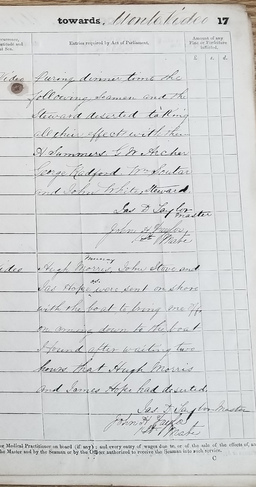 towards, Monte Video 17
Entries required by Act of Parliament.
Amount of any Fine or Forfeiture inflicted.
£ s. d.
Video During dinner time the
following Seamen and the
Steward deserted taking
all their effects with them
H Sammers G W Archer
George Radford Wm
and John White Steward
Jas D Taylor
Master
John H
Mate
Video Hugh Morris, John Stone and
Jas Hope were sent on shore
with the boat to bring me off
on coming down to the boat
I found after waiting two
hours that Hugh Morris
and James Hope had deserted
Jas D Taylor Master
John H
Mate
Medical Practitioner on board (if any); and every entry of wages due to, or of the sale of the effects of,
the Master and by the Seaman or by the Officer authorized to receive the
C